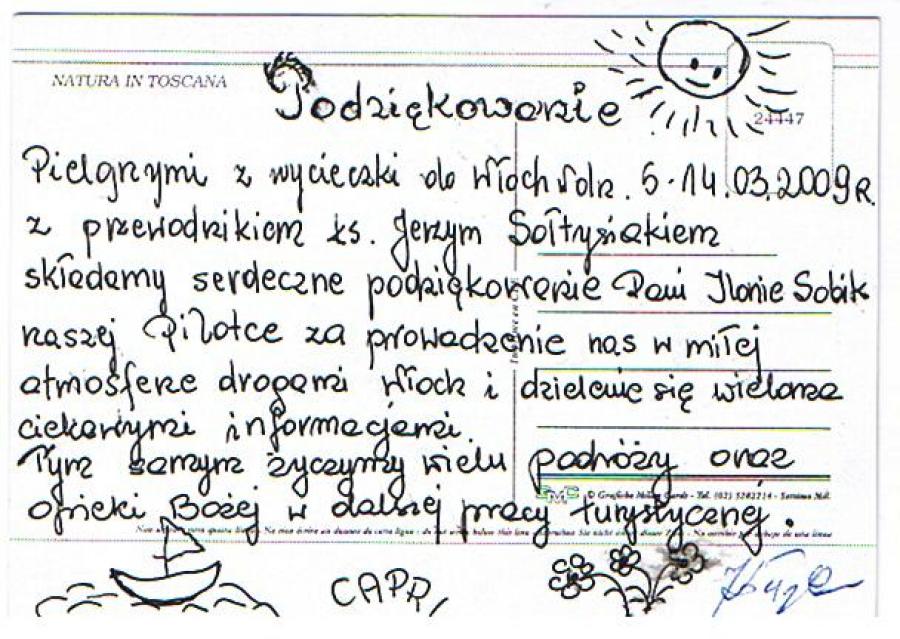 NATURA IN TOSCANA
Podziękowanie
24447
Pielgrzymi z wycieczki do Włoch w dn. 5-14.03.2009 R.
z przewodnikiem ks. Jerzym Sołtysiakiem
składamy serdeczne podziękowanie Pani Ilonie Sobik
naszej Pilotce za prowadzenie nas w miłej
atmosferze drogami Włoch i dzielenie się wieloma
ciekawymi informacjami.
Tym samym życzymy wielu podróży oraz
opieki Bożej w dalszej pracy turystycznej.
CAPRI